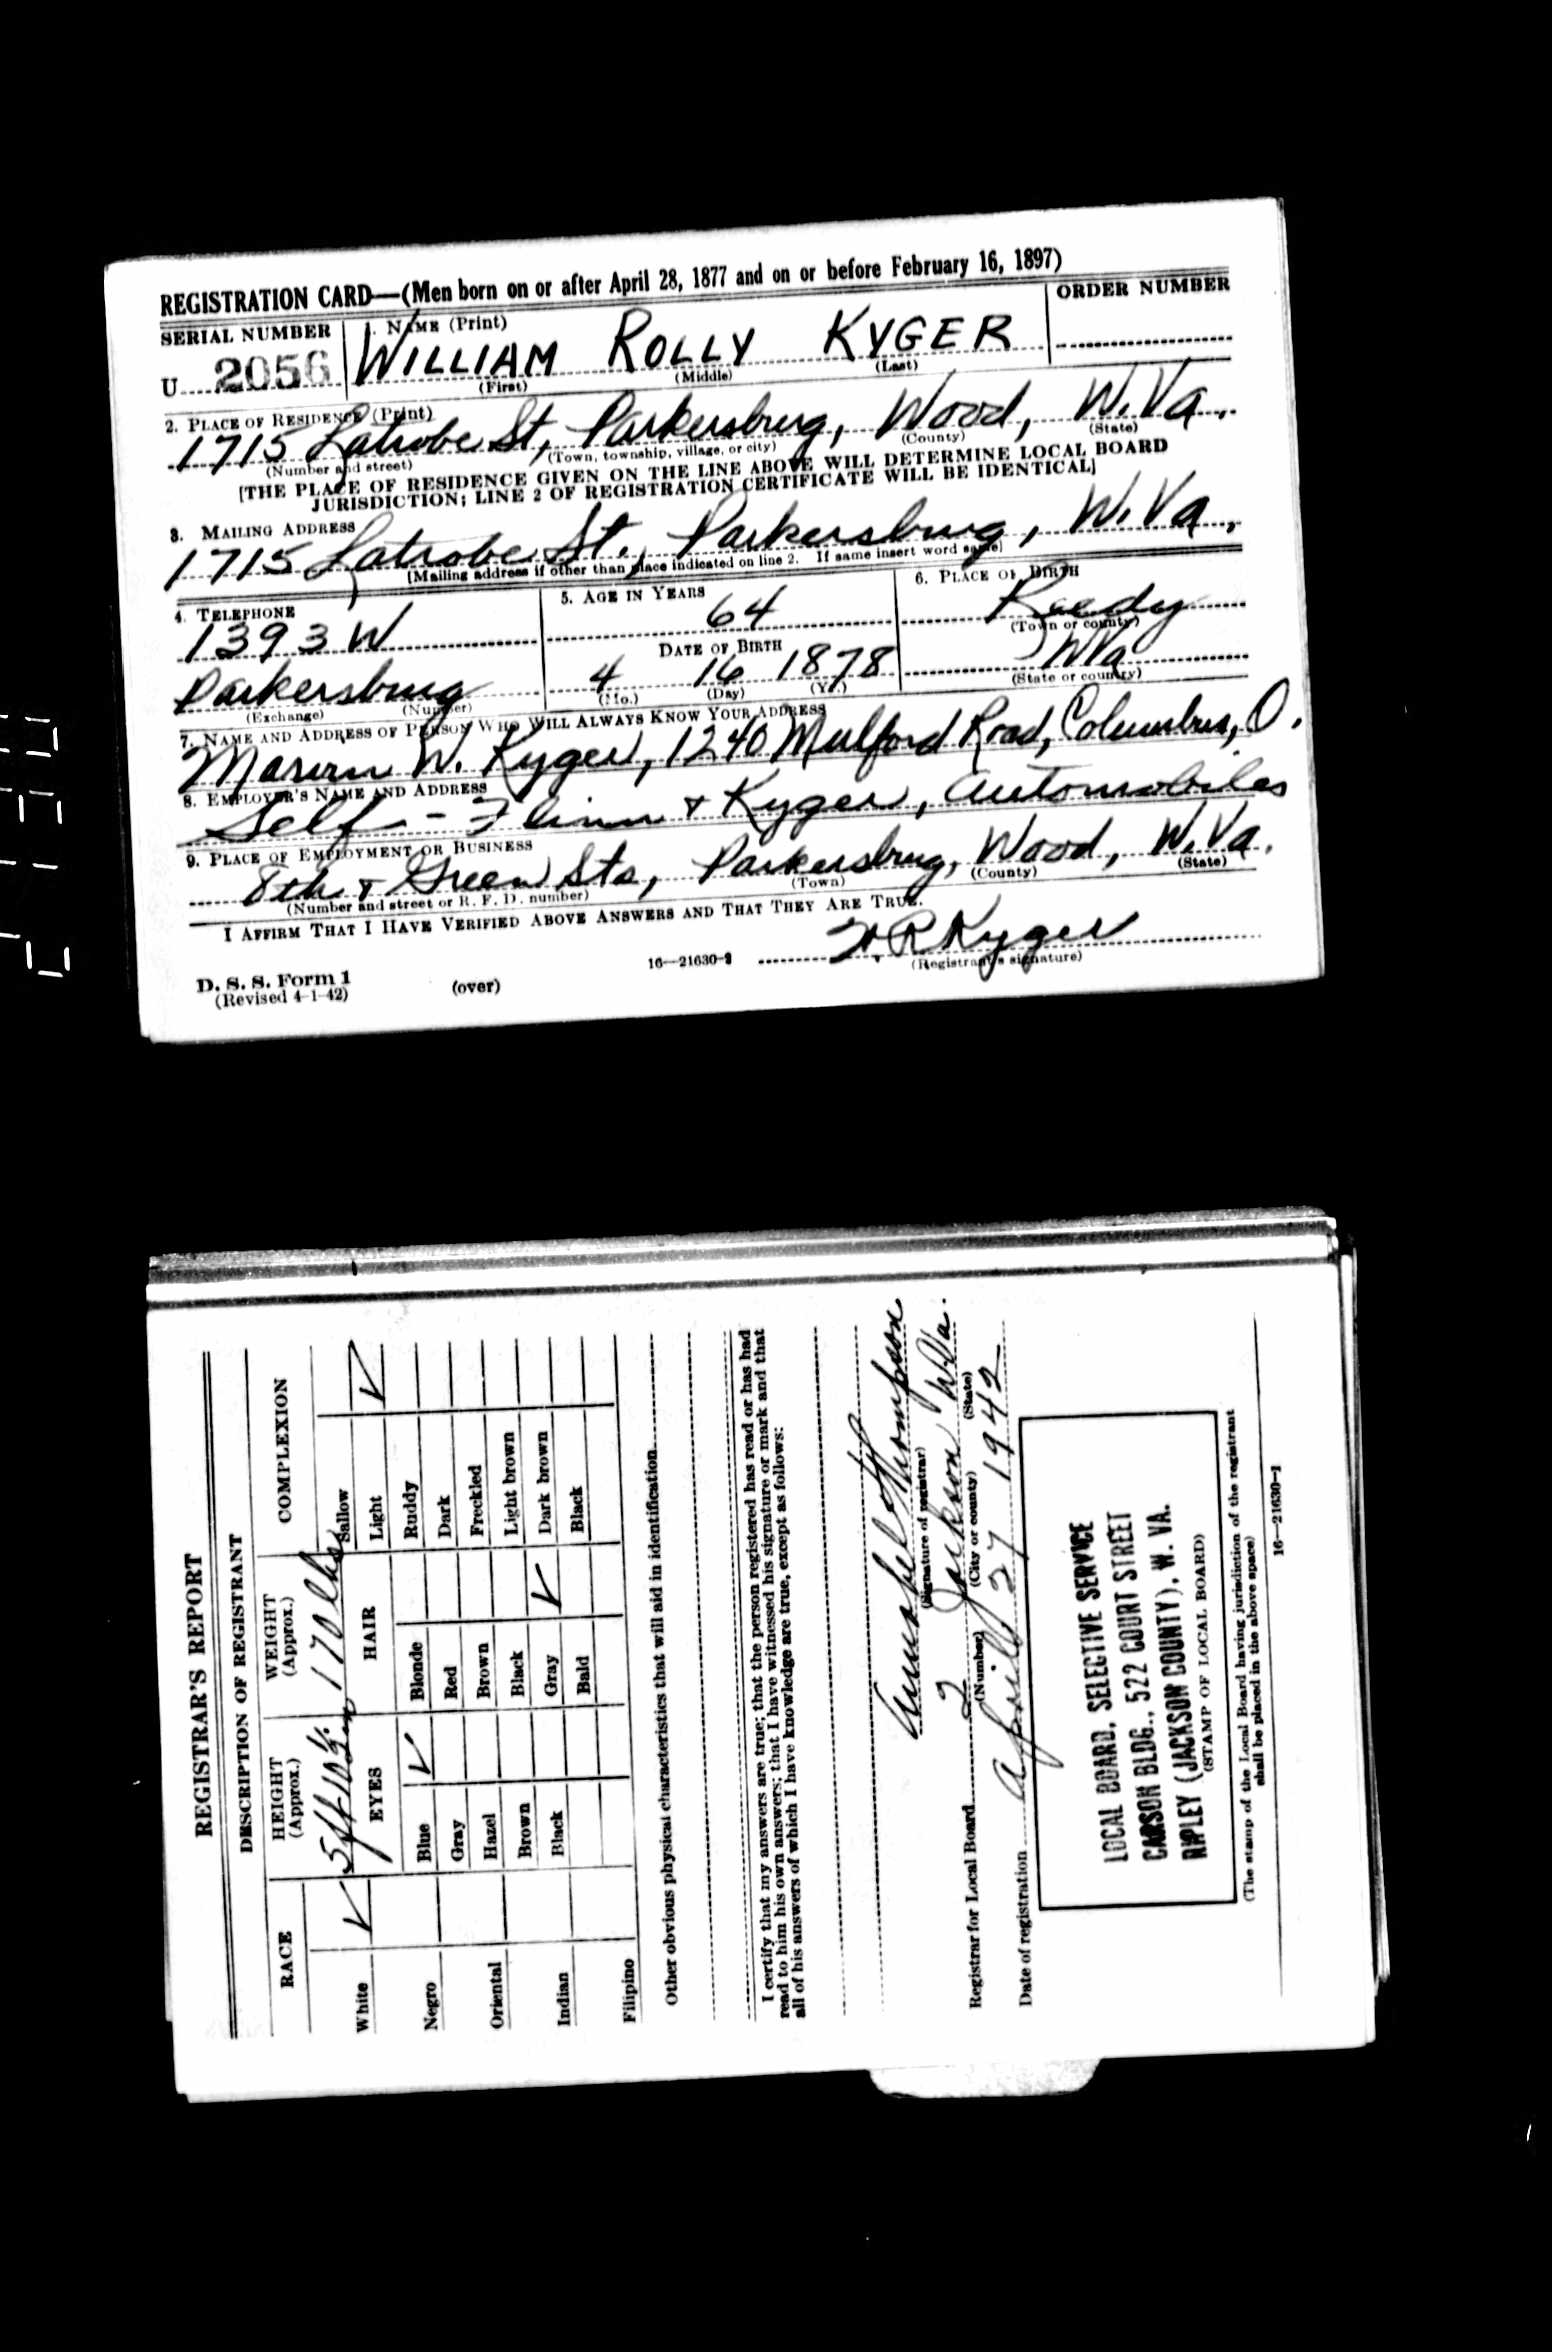 REGISTRATION CARD—(Men born on or after April 28, 1877 and on or before February 16, 1897)
SERIAL NUMBER 1. NAME (Print) ORDER NUMBER
U 2056 WILLIAM ROLLY KYGER
(First) (Middle) (Last)
2. PLACE OF RESIDENCE (Print)
1715 Latrobe St, Parkersburg, Wood, W. Va.
(Number and street) (Town, township, village, or city) (County) (State)
[THE PLACE OF RESIDENCE GIVEN ON THE LINE ABOVE WILL DETERMINE LOCAL BOARD
JURISDICTION; LINE 2 OF REGISTRATION CERTIFICATE WILL BE IDENTICAL]
3. MAILING ADDRESS
1715 Latrobe St., Parkersburg, W. Va.
[Mailing address if other than place indicated on line 2. If same insert word same]
4. TELEPHONE 5. AGE IN YEARS 6. PLACE OF BIRTH
1393 W 64 Reedy
(Town or county)
DATE OF BIRTH
Parkersburg 4 16 1878 W Va
(Exchange) (Number) (Mo.) (Day) (Yr.) (State or country)
7. NAME AND ADDRESS OF PERSON WHO WILL ALWAYS KNOW YOUR ADDRESS
W. Kyger, 1240 Mulford Road, Columbus, O.
8. EMPLOYER'S NAME AND ADDRESS
Self - Flinn & Kyger, Automobiles
9. PLACE OF EMPLOYMENT OR BUSINESS
8th & Green Sts, Parkersburg, Wood, W. Va.
(Number and street or R. F. D. number) (Town) (County) (State)
I AFFIRM THAT I HAVE VERIFIED ABOVE ANSWERS AND THAT THEY ARE TRUE.
W. R Kyger
D. S. S. Form 1 16—21630-2 (Registrant's signature)
(Revised 4-1-42) (over)
REGISTRAR'S REPORT
DESCRIPTION OF REGISTRANT
RACE HEIGHT (Approx.) WEIGHT (Approx.) COMPLEXION
5 ft 10½ in 170 lbs
EYES HAIR
White ✓ Blue ✓ Blonde Sallow
Negro Gray Red Light ✓
Oriental Hazel Brown Ruddy
Indian Brown Black Dark
Filipino Black Gray ✓ Freckled
Bald Light brown
Dark brown
Black
Other obvious physical characteristics that will aid in identification
I certify that my answers are true; that the person registered has read or has had
read to him his own answers; that I have witnessed his signature or mark and that
all of his answers of which I have knowledge are true, except as follows:
Annabel Thompson
(Signature of registrar)
Registrar for Local Board 2 Jackson W. Va.
(Number) (City or county) (State)
Date of registration April 27 1942
LOCAL BOARD, SELECTIVE SERVICE
CARSON BLDG., 522 COURT STREET
RIPLEY (JACKSON COUNTY), W. VA.
(STAMP OF LOCAL BOARD)
(The stamp of the Local Board having jurisdiction of the registrant
shall be placed in the above space)
16—21630-1